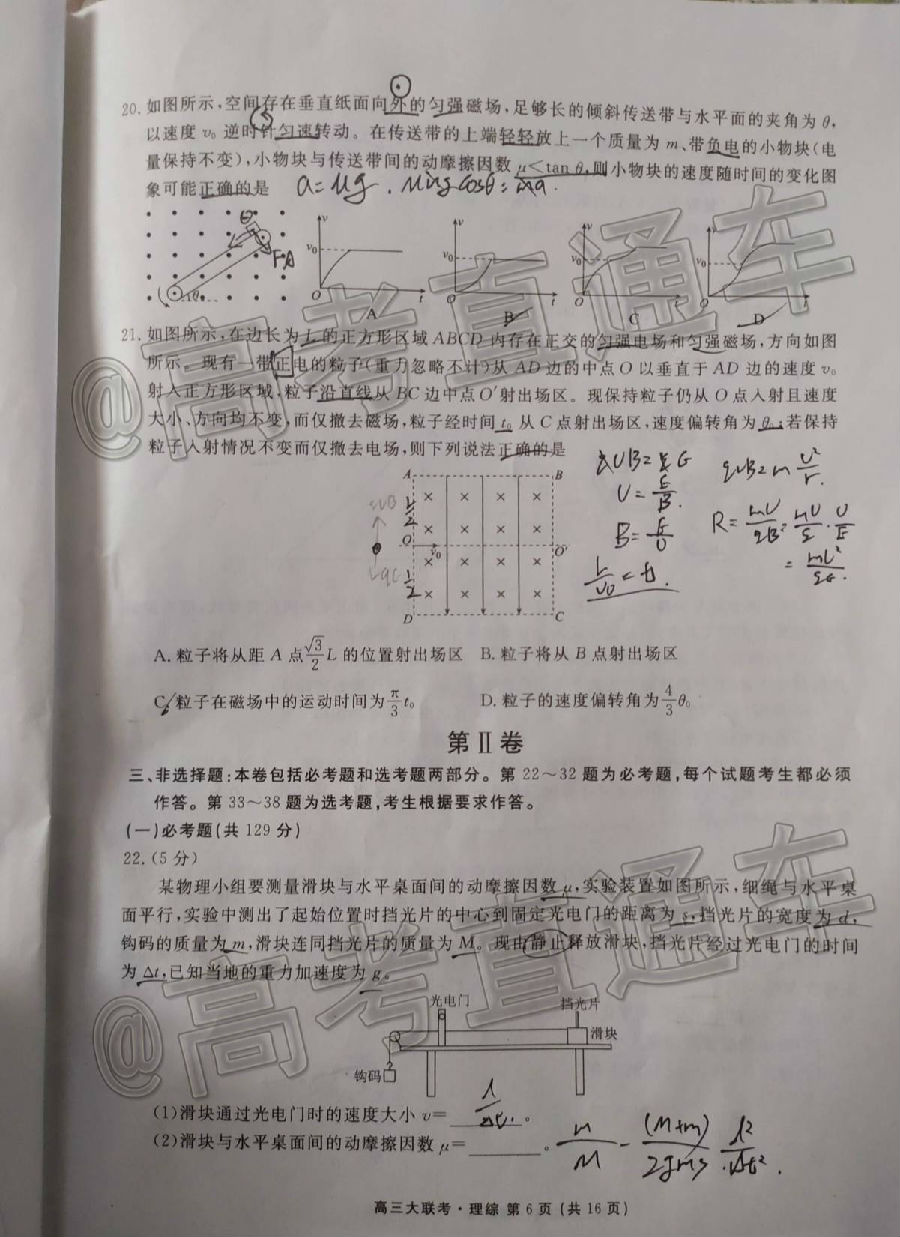 20. 如图所示,空间存在垂直纸面向外的匀强磁场,足够长的倾斜传送带与水平面的夹角为 θ,
以速度 v₀ 逆时针匀速转动。在传送带的上端轻轻放上一个质量为 m、带负电的小物块(电
量保持不变),小物块与传送带间的动摩擦因数 μ<tan θ,则小物块的速度随时间的变化图
象可能正确的是 a=μg. μmgcosθ=ma.
v v v v
v₀ v₀ v₀ v₀
O t O t O t O t
A B C D
21. 如图所示,在边长为 L 的正方形区域 ABCD 内存在正交的匀强电场和匀强磁场,方向如图
所示。现有一带正电的粒子(重力忽略不计)从 AD 边的中点 O 以垂直于 AD 边的速度 v₀
射入正方形区域,粒子沿直线从 BC 边中点 O′射出场区。现保持粒子仍从 O 点入射且速度
大小、方向均不变,而仅撤去磁场,粒子经时间 t₀ 从 C 点射出场区,速度偏转角为 θ₀;若保持
粒子入射情况不变而仅撤去电场,则下列说法正确的是
A B
O v₀ O′
D C
A. 粒子将从距 A 点 √3/2 L 的位置射出场区 B. 粒子将从 B 点射出场区
C. 粒子在磁场中的运动时间为 π/3 t₀ D. 粒子的速度偏转角为 4/3 θ₀
第Ⅱ卷
三、非选择题:本卷包括必考题和选考题两部分。第 22～32 题为必考题,每个试题考生都必须
作答。第 33～38 题为选考题,考生根据要求作答。
(一)必考题(共 129 分)
22. (5 分)
某物理小组要测量滑块与水平桌面间的动摩擦因数 μ,实验装置如图所示,细绳与水平桌
面平行,实验中测出了起始位置时挡光片的中心到固定光电门的距离为 s,挡光片的宽度为 d,
钩码的质量为 m,滑块连同挡光片的质量为 M。现由静止释放滑块,挡光片经过光电门的时间
为 Δt,已知当地的重力加速度为 g。
光电门 挡光片
滑块
钩码
(1)滑块通过光电门时的速度大小 v= d/Δt 。
(2)滑块与水平桌面间的动摩擦因数 μ=______。 m/M - (M+m)/2gMs d²/Δt².
高三大联考·理综 第 6 页 (共 16 页)
@高考直通车
@高考直通车